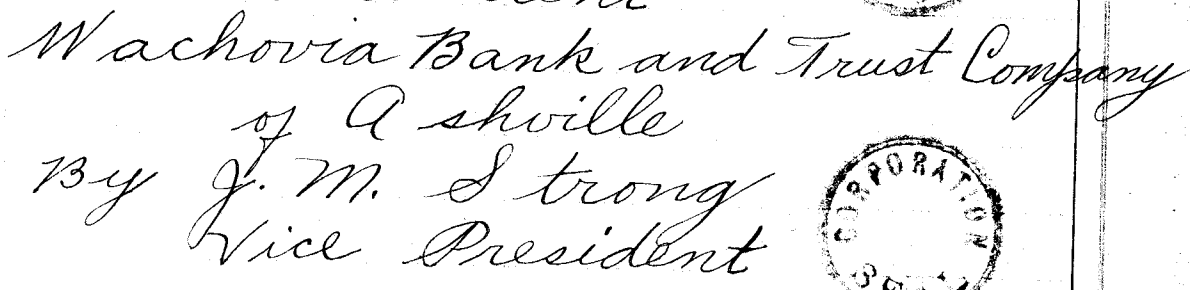 Wachovia Bank and Trust Company
of Ashville
By J. M. Strong
Vice President
CORPORATION